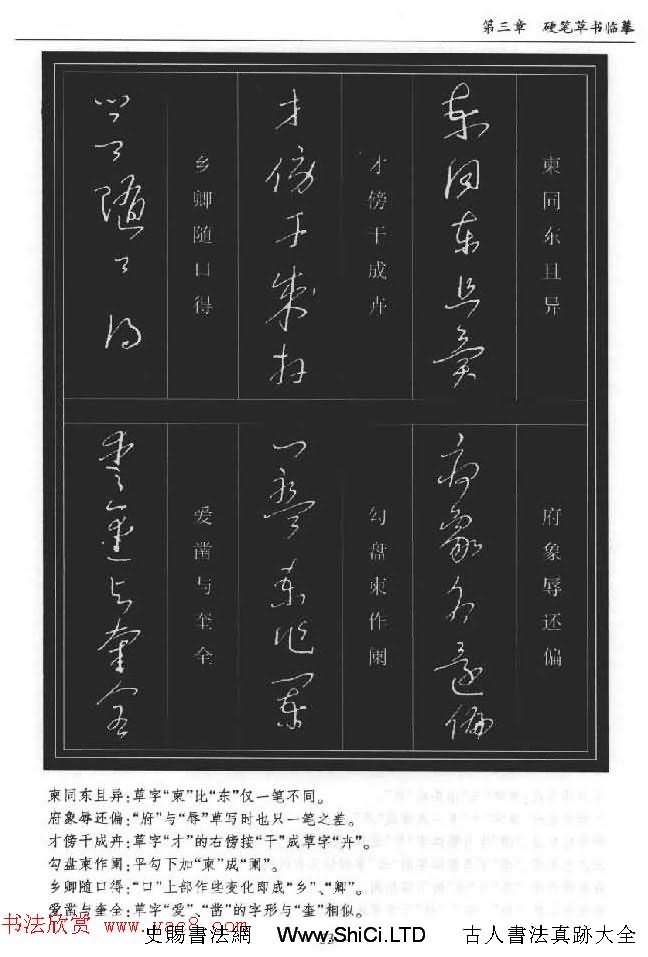 第三章 硬笔草书临摹
柬同东且异
才傍干成卉
乡卿随口得
府象辱还偏
勾盘柬作阑
爱凿与奎全
柬同东且异:草字“柬”比“东”仅一笔不同。
府象辱还偏:“府”与“辱”草写时也只一笔之差。
才傍干成卉:草字“才”的右傍按“干”成草字“卉”。
勾盘柬作阑:平勾下加“柬”成“阑”。
乡卿随口得:“口”上部作些变化即成“乡”、“卿”。
爱凿与奎全:草字“爱”、“凿”的字形与“奎”相似。
书法欣赏 www.yac8.com
史賜書法網 Www.ShiCi.LTD 古人書法真跡大全